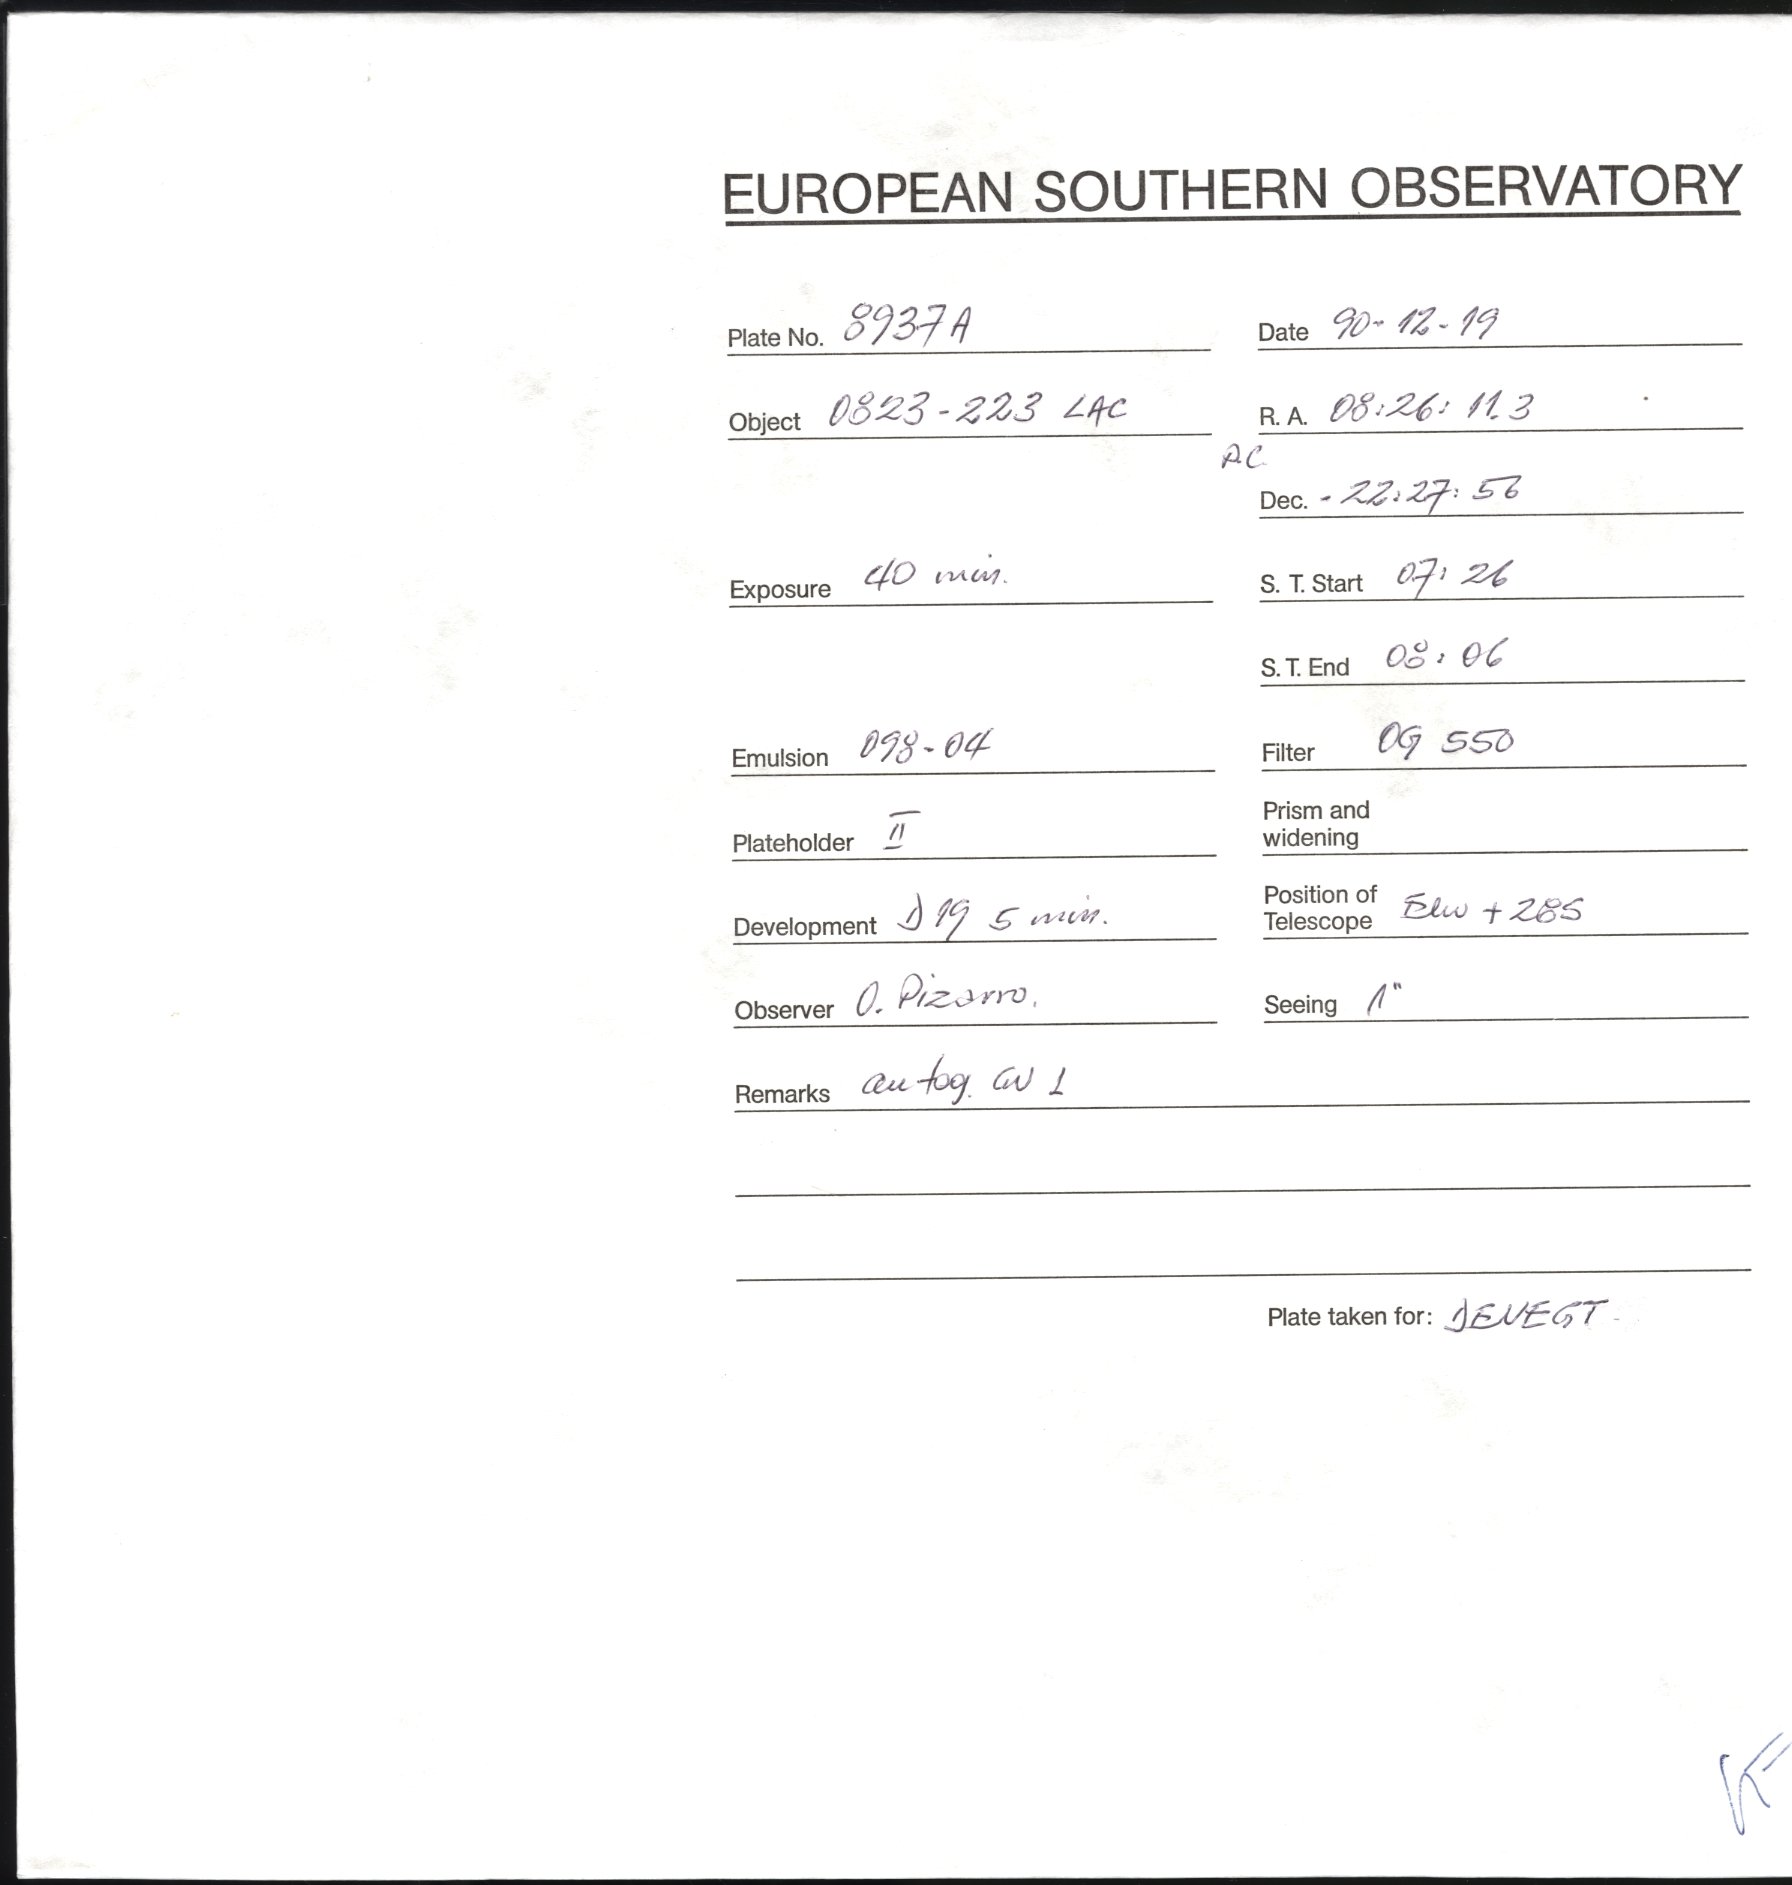 EUROPEAN SOUTHERN OBSERVATORY
Plate No. 8937A
Date 90-12-19
Object 0823-223 LAC
R. A. 08:26:11.3
A.C.
Dec. -22:27:56
Exposure 40 min.
S. T. Start 07:26
S. T. End 08:06
Emulsion 098-04
Filter OG 550
Plateholder II
Prism and
widening
Development D19 5 min.
Position of
Telescope +285
Observer O. Pizarro.
Seeing 1"
Remarks autog.
Plate taken for: DEVEGT